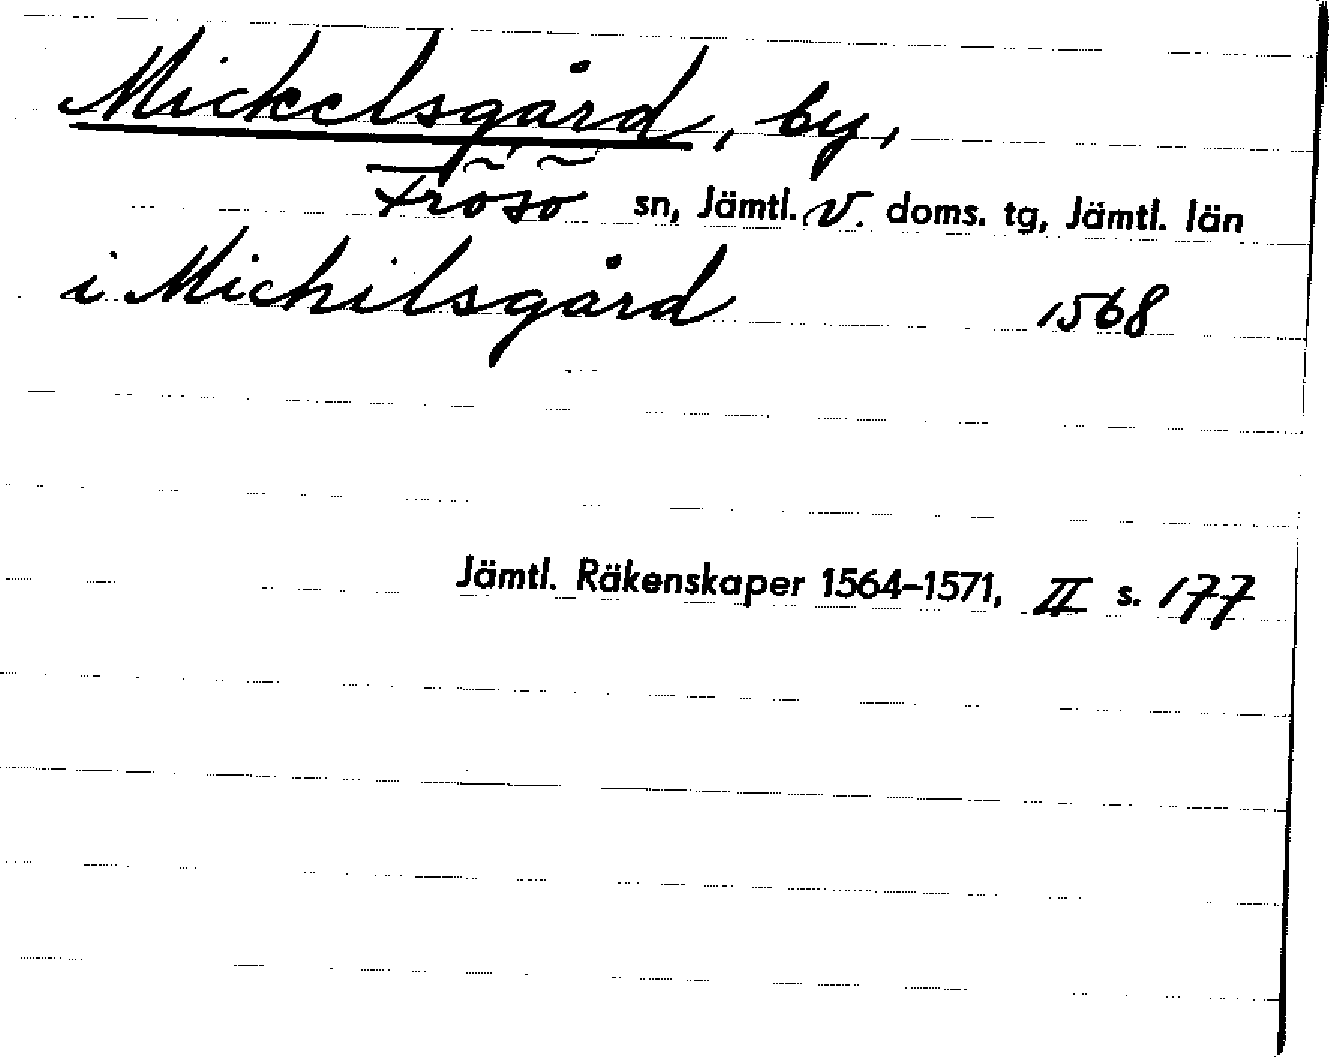 Mickelsgård, by,
Frösö sn, Jämtl. v. doms. tg, Jämtl. län
i Michilsgård 1568
Jämtl. Räkenskaper 1564–1571, II s. 177